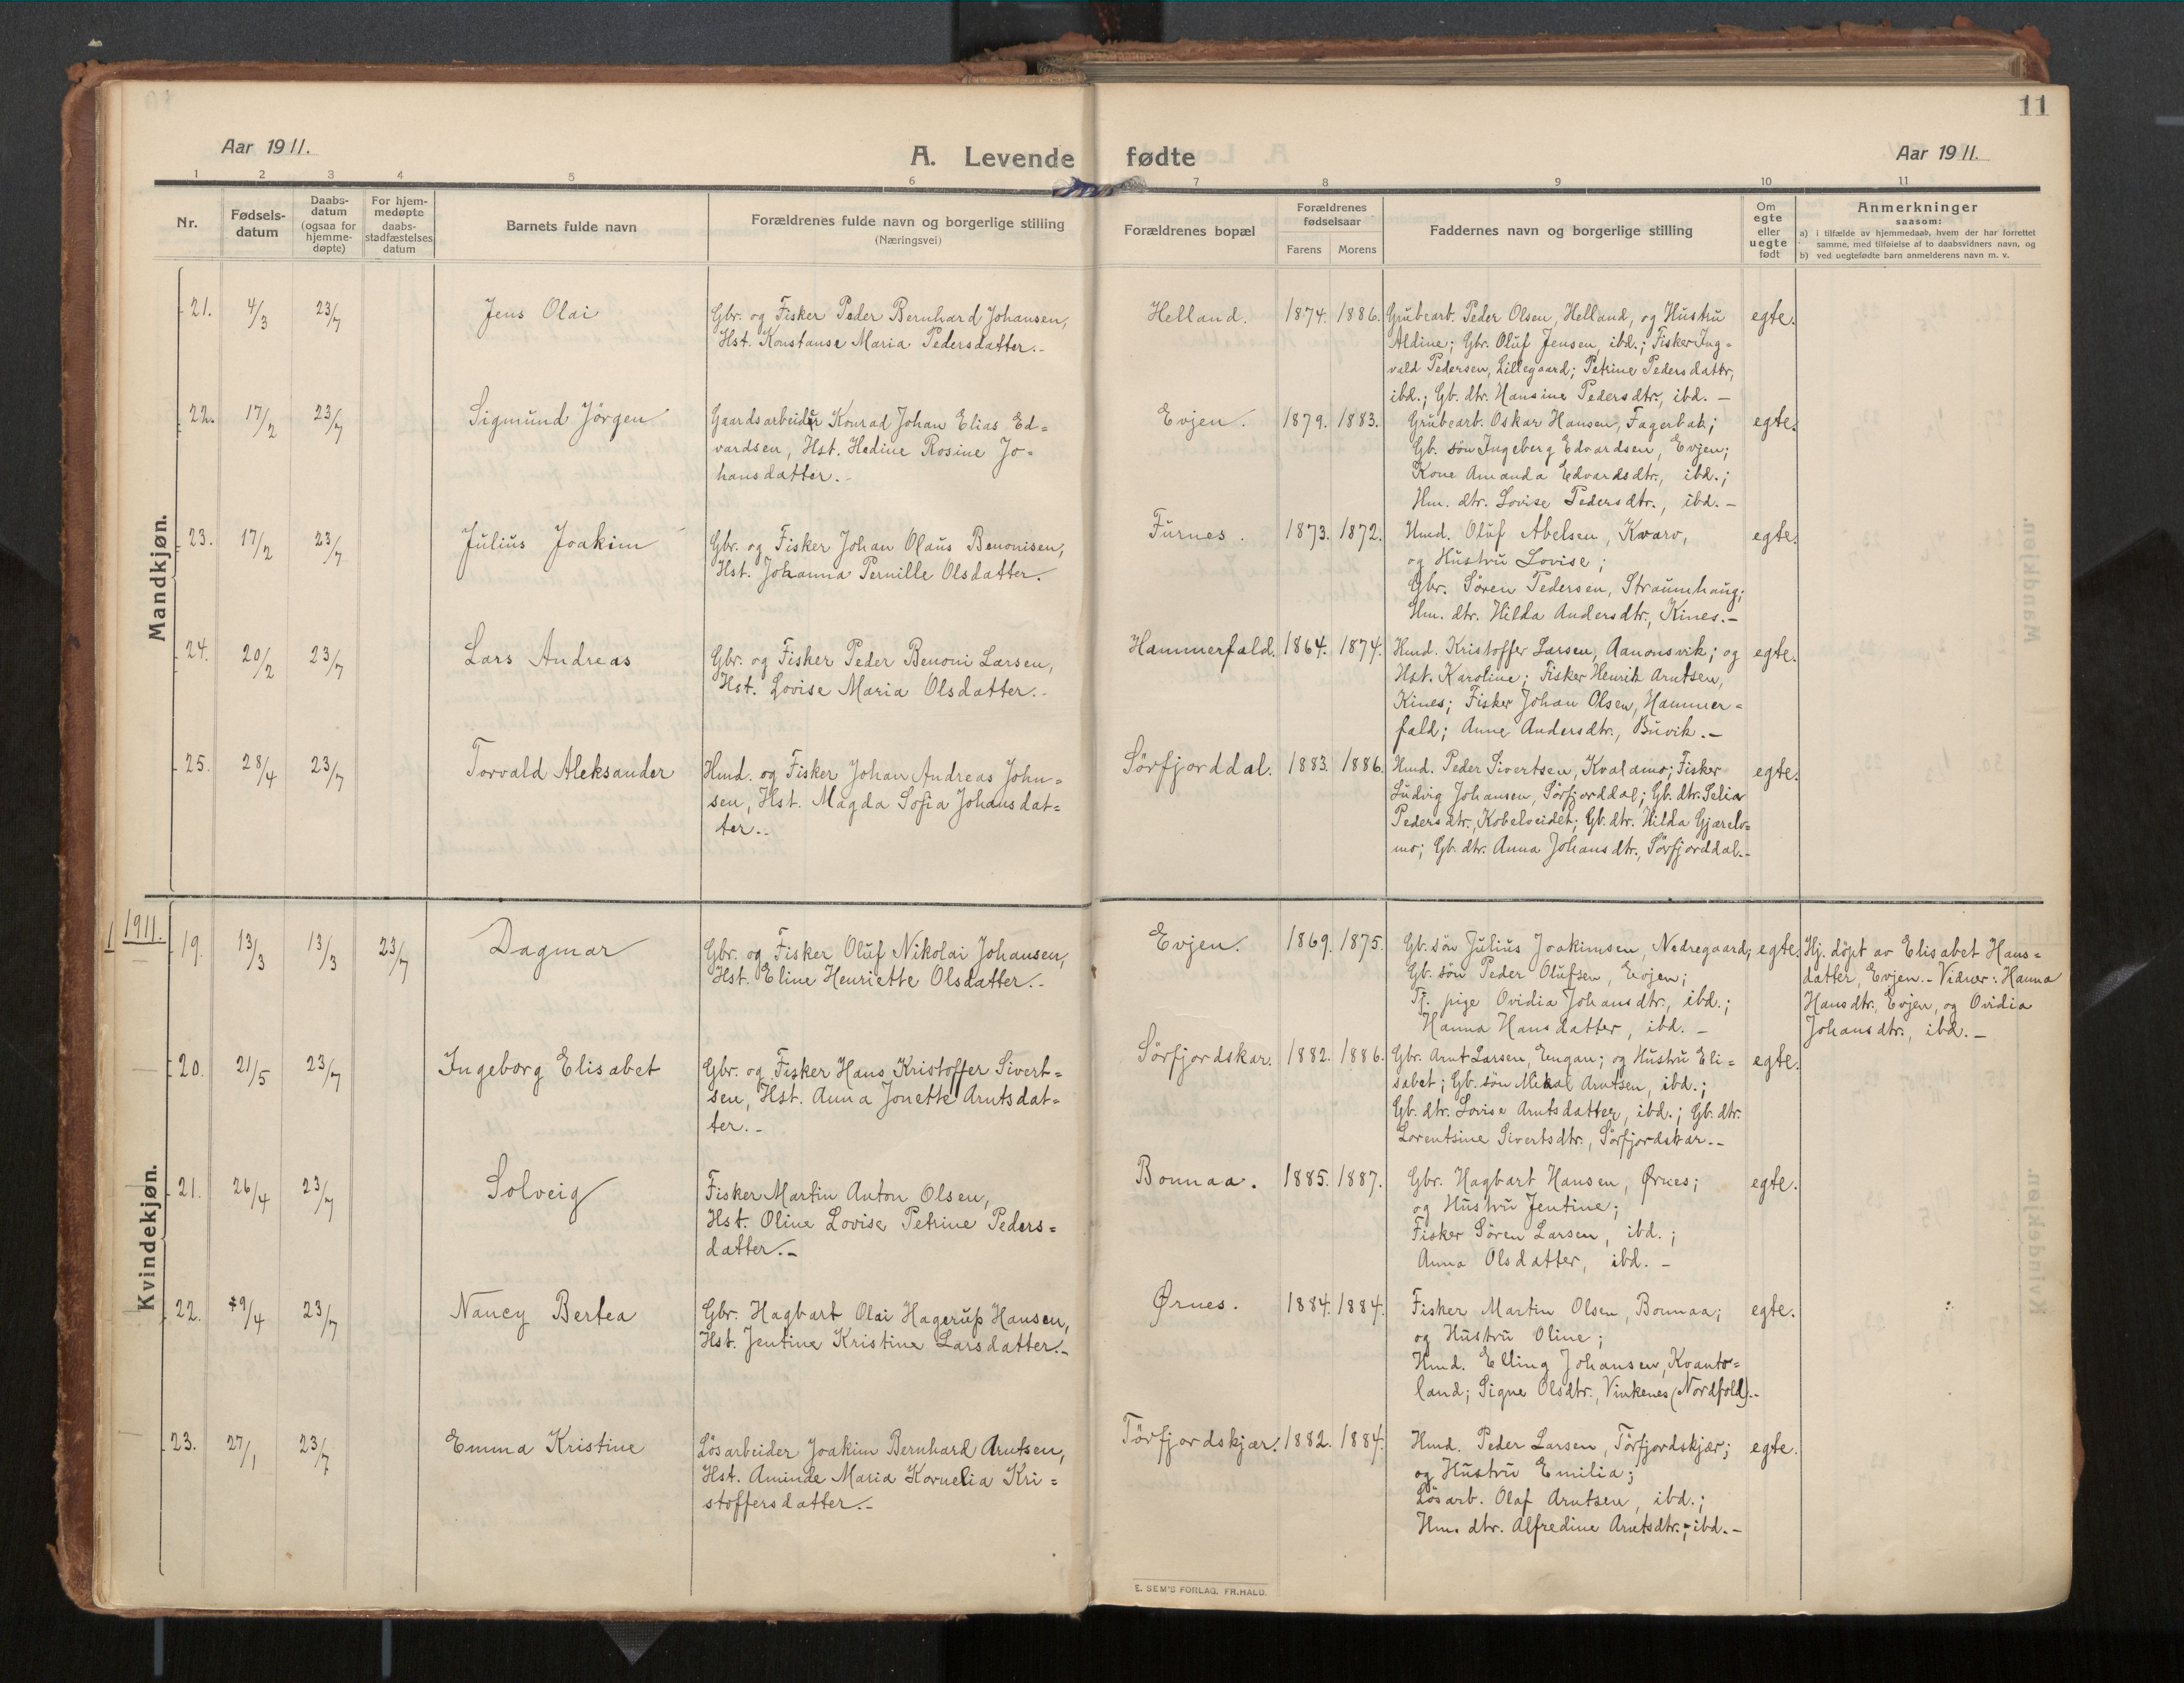 11
Aar 1911.
A. Levende fødte
Aar 1911.
1 2 3 4 5 6 7 8 9 10 11
Nr.
Fødsels-
datum
Daabs-
datum
(ogsaa for
hjemme-
døpte)
For hjem-
medøpte
daabs-
stadfæstelses
datum
Barnets fulde navn
Forældrenes fulde navn og borgerlige stilling
(Næringsvei)
Forældrenes bopæl
Forældrenes
fødselsaar
Farens Morens
Faddernes navn og borgerlige stilling
Om
egte
eller
uegte
født
Anmerkninger
saasom:
a) i tilfælde av hjemmedaab, hvem der har forrettet
samme, med tilføielse af to daabsvidners navn, og
b) ved uegtefødte barn anmelderens navn m. v.
Mandkjøn.
21. 4/3 23/7 Jens Olai
Gbr. og Fisker Peder Bernhard Johansen,
Hst. Konstanse Maria Pedersdatter.-
Helland. 1874. 1886.
Grubearb. Peder Olsen, Helland, og Hustru
Aldine; Gbr. Oluf Jensen, ibd.; Fisker Ing=
vald Pedersen, Lillegaard; Petrine Pedersdattr,
ibd.; Gb. dtr. Hansine Pedersdtr., ibd. -
egte.
22. 17/2 23/7 Sigmund Jörgen
Gaardsarbeider Konrad Johan Elias Ed=
vardsen, Hst. Hedine Rosine Jo=
hansdatter.-
Evjen. 1879. 1883.
Grubearb. Oskar Hansen, Fagerbak;
Gb. sön Ingeberg Edvardsen, Evjen;
Kone Amanda Edvardsdtr., ibd.;
Hm. dtr. Lovise Pedersdtr., ibd. -
egte.
23. 17/2 23/7 Julius Joakim
Gbr. og Fisker Johan Olaus Benonisen,
Hst. Johanna Pernille Olsdatter.
Furnes. 1873. 1872.
Hmd. Oluf Abelsen, Kvarv,
og Hustru Lovise;
Gbr. Sören Pedersen, Straumhaug;
Hm. dtr. Hilda Andersdtr., Kines.-
egte.
24. 20/2 23/7 Lars Andreas
Gbr. og Fisker Peder Benoni Larsen,
Hst. Lovise Maria Olsdatter.-
Hammerfald. 1864. 1874.
Hmd. Kristoffer Larsen, Aanonsvik; og
Hst. Karoline; Fisker Henrik Arntsen,
Kines; Fisker Johan Olsen, Hammer=
fald; Anne Andersdtr., Buvik.-
egte.
25. 28/4 23/7 Torvald Aleksander
Hmd. og Fisker Johan Andreas John=
sen, Hst. Magda Sofia Johansdat=
ter.-
Sörfjorddal. 1883. 1886.
Hmd. Peder Sivertsen, Kvalamo; Fisker
Ludvig Johansen, Sörfjorddal; Gb. dtr. Selia
Pedersdtr., Kobelveidet; Gb. dtr. Hilda Gjærelv=
mo; Gb. dtr. Anna Johansdtr., Sörfjorddal.-
egte.
Kvindekjøn.
1 1911.
19. 13/3 13/3 23/7 Dagmar
Gbr. og Fisker Oluf Nikolai Johansen,
Hst. Eline Henriette Olsdatter.-
Evjen. 1869. 1875.
Gb. sön Julius Joakimsen, Nedregaard;
Gb. sön Peder Olufsen, Evjen;
Tj. pige Ovidia Johansdtr., ibd.;
Hanna Hansdatter, ibd. -
egte.
Hj. döpt av Elisabet Hans=
datter, Evjen.- Vidner: Hanna
Hansdtr., Evjen, og Ovidia
Johansdtr., ibd. -
20. 21/5 23/7 Ingeborg Elisabet
Gbr. og Fisker Hans Kristoffer Sivert=
sen, Hst. Anna Jonette Arntsdat=
ter.-
Sörfjordskar. 1882. 1886.
Gbr. Arnt Larsen, Engan; og Hustru Eli=
sabet; Gb. sön Mikal Arntsen, ibd.;
Gb. dtr. Lovise Arntsdatter, ibd.; Gb. dtr.
Lorentsine Sivertsdtr., Sörfjordskar.-
egte.
21. 26/4 23/7 Solveig
Fisker Martin Anton Olsen,
Hst. Oline Lovise Petrine Peders=
datter.-
Bonnaa. 1885. 1887.
Gbr. Hagbart Hansen, Ørnes;
og Hustru Jentine;
Fisker Sören Larsen, ibd.;
Anna Olsdatter, ibd. -
egte.
22. 9/4 23/7 Nancy Bertea
Gbr. Hagbart Olai Hagerup Hansen,
Hst. Jentine Kristine Larsdatter.-
Ørnes. 1884. 1884.
Fisker Martin Olsen, Bonnaa;
og Hustru Oline;
Hmd. Elling Johansen, Kvanto=
land; Signe Olsdtr., Vinkenes (Nordfold).-
egte.
23. 27/1 23/7 Emma Kristine
Lösarbeider Joakim Bernhard Arntsen,
Hst. Aminde Maria Kornelia Kri=
stoffersdatter.-
Törfjordskjær. 1882. 1884.
Hmd. Peder Larsen, Törfjordskjær;
og Hustru Emilia;
Lösarb. Olaf Arntsen, ibd.;
Hm. dtr. Alfredine Arntsdtr., ibd.-
egte.
E. SEM'S FORLAG. FR.HALD.